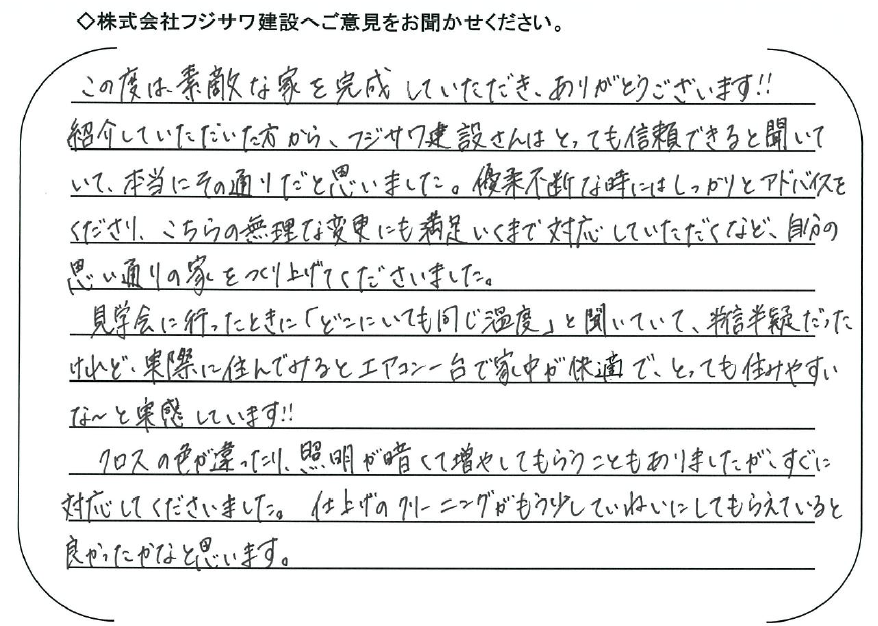 ◇株式会社フジサワ建設へご意見をお聞かせください。
この度は素敵な家を完成していただき、ありがとうございます!!
紹介していただいた方から、フジサワ建設さんはとっても信頼できると聞いて
いて、本当にその通りだと思いました。優柔不断な時にはしっかりとアドバイスを
くださり、こちらの無理な変更にも満足いくまで対応していただくなど、自分の
思い通りの家をつくり上げてくださいました。
見学会に行ったときに「どこにいても同じ温度」と聞いていて、半信半疑だった
けれど、実際に住んでみるとエアコン一台で家中が快適で、とっても住みやすい
な〜と実感しています!!
クロスの色が違ったり、照明が暗くて増やしてもらうこともありましたが、すぐに
対応してくださいました。仕上げのクリーニングがもう少していねいにしてもらえていると
良かったかなと思います。